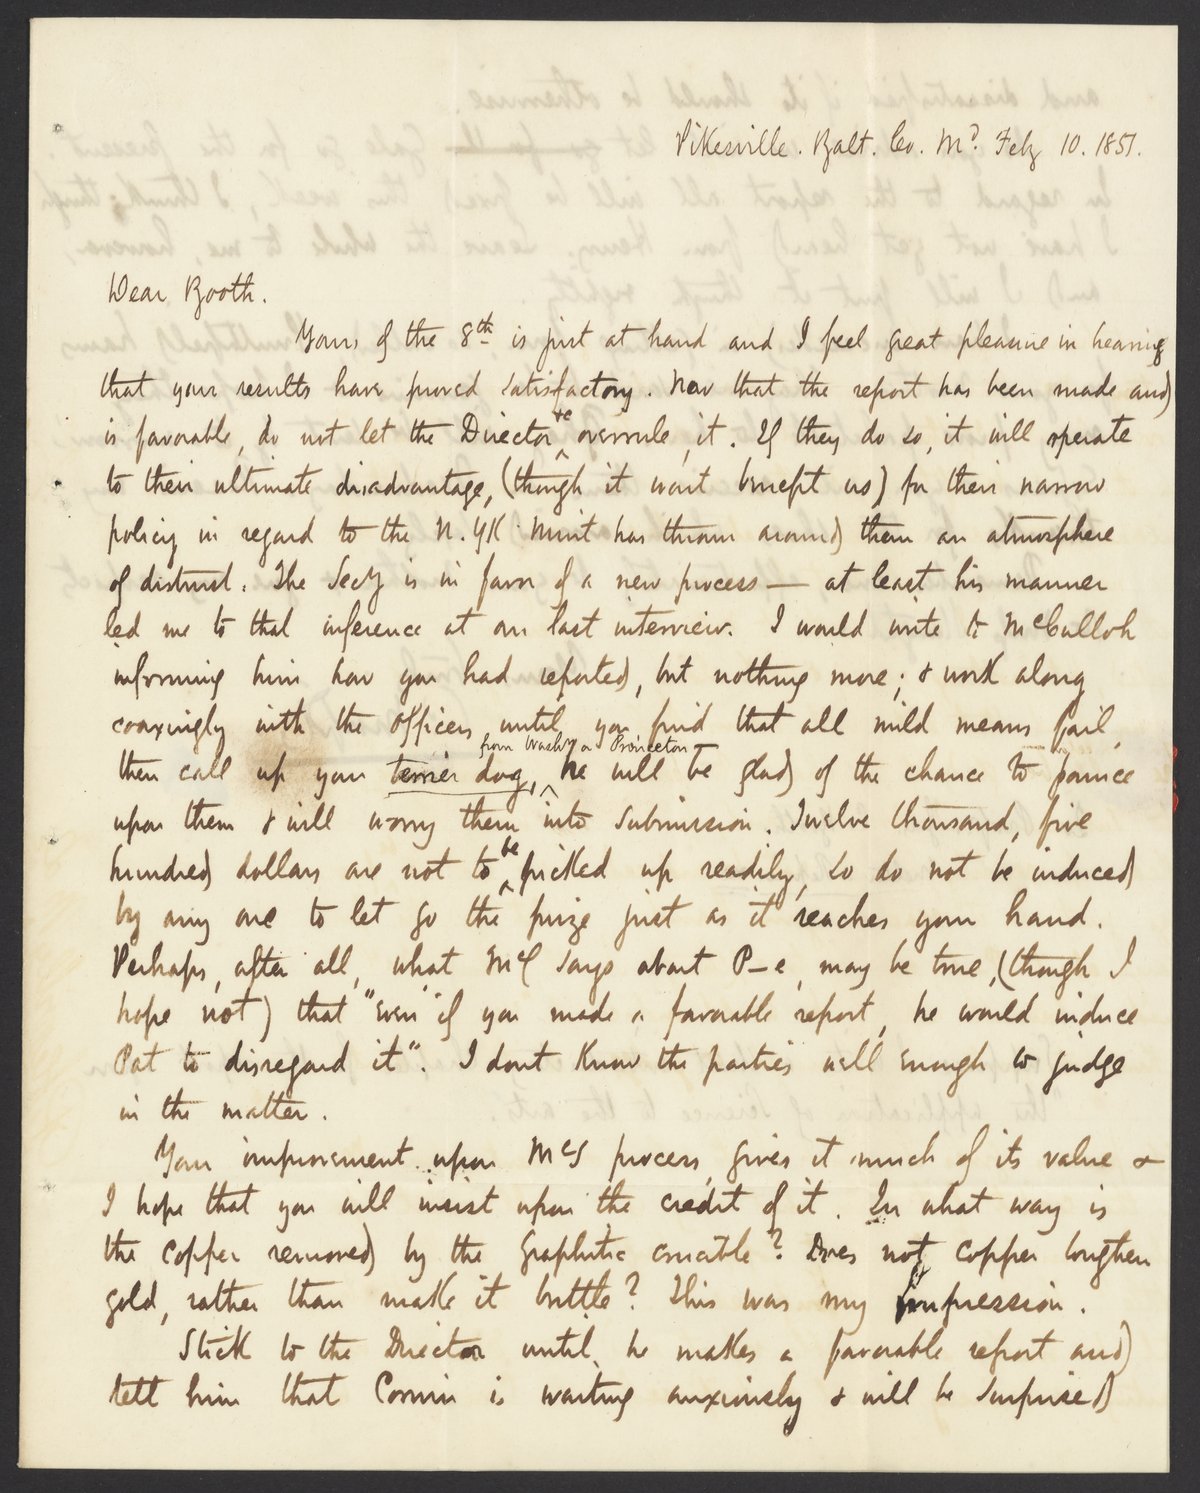 Pikesville. Balt. Co. Md. Feby 10. 1851.
Dear Booth.
Yours of the 8th is just at hand and I feel great pleasure in hearing
that your results have proved satisfactory. Now that the report has been made and
is favorable, do not let the Director &c overrule it. If they do so, it will operate
to their ultimate disadvantage, (though it wont benefit us) for their narrow
policy in regard to the N. Yk Mint has thrown around them an atmosphere
of distrust. The Secy is in favor of a new process — at least his manner
led me to that inference at our last interview. I would write to McCulloh
informing him how you had reported, but nothing more; & work along
coaxingly with the officers until you find that all mild means fail,
from Washn or Princeton
then call up your terrier dog, he will be glad of the chance to pounce
upon them & will worry them into submission. Twelve thousand, five
hundred dollars are not to be picked up readily, so do not be induced
by any one to let go the prize just as it reaches your hand.
Perhaps, after all, what McC says about P–e, may be true, (though I
hope not) that "even if you made a favorable report, he would induce
Pat to disregard it". I dont know the parties well enough to judge
in the matter.
Your improvement upon McC's process, gives it much of its value &
I hope that you will insist upon the credit of it. In what way is
the copper removed by the graphitic crucible? Does not copper toughen
gold, rather than make it brittle? This was my impression.
Stick to the Director until he makes a favorable report and
tell him that Corwin is waiting anxiously & will be surprised